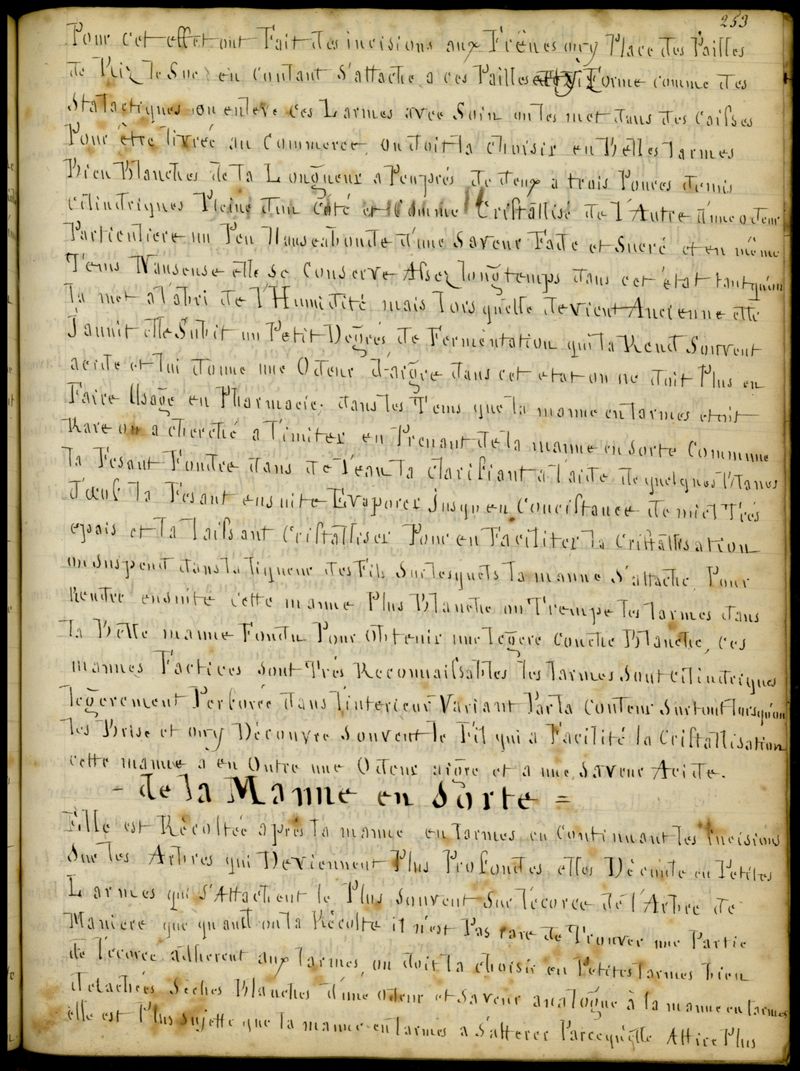 253
Pour cet effet ont Fait des incisions aux Frênes on y Place des Pailles
de Riz le Suc en Coulant S'attache a ces Pailles et y Forme comme des
Stalactiques on enleve ces Larmes avec Soin on les met dans des Caisses
Pour être livrée au Commerce, on doit la choisir en Belles larmes
Bien Blanches de la Longueur a Peu près de deux a trois Pouces demis
cilindriques Pleine d'un Côté et Comme Cristallisé de l'Autre d'une odeur
Particuliere un Peu Nauseabonde d'une Saveur Fade et Sucré et en même
Tems Nauseuse elle se Conserve Assez longtemps dans cet état tant qu'on
la met a l'abri de l'Humidité mais lorsquelle devient Ancienne elle
Jaunit elle Subit un Petit Degrés de Fermentation qui la Rend Souvent
acide et lui donne une Odeur d'aigre dans cet etat on ne doit Plus en
Faire Usage en Pharmacie. dans les Tems que la manne en larmes etoit
Rare on a cherché a l'imiter en Prenant de la manne en sorte Commune
la Fesant Fondre dans de l'eau la clarifiant a l'aide de quelques Blancs
d'œuf la Fesant ensuite Evaporer Jusqu'en Concistance de miel Très
epais et la laissant Cristalliser Pour en Faciliter la Cristallisation
on suspend dans la liqueur des Fils Sur lesquels la manne S'attache Pour
Rendre ensuite cette manne Plus Blanche on Trempe les larmes dans
la Belle manne Fondu Pour Obtenir une legere Couche Blanche, ces
mannes Factices Sont Très Reconnaissables les larmes Sont cilindriques
legerement Perforée dans l'interieur Variant Par la Couleur Surtout lorsqu'on
les Brise et on y Découvre Souvent le Fil qui a Facilité la Cristallisation
cette manne a en Outre une Odeur aigre et a une Saveur Acide.
- de la Manne en Sorte =
Elle est Récoltée après la manne en larmes en Continuant les incisions
Sur les Arbres qui Deviennent Plus Profondes, elles Découle en Petites
Larmes qui S'Attachent le Plus Souvent Sur l'écorce de l'Arbre de
Maniere que quant on la Récolte il n'est Pas rare de Trouver une Partie
de l'ecorce adherent aux larmes, on doit la choisir en Petites larmes bien
detachées Seches Blanches d'une odeur et Saveur analogue à la manne en larmes
elle est Plus Sujette que la manne en larmes a S'alterer Parcequ'elle Attire Plus